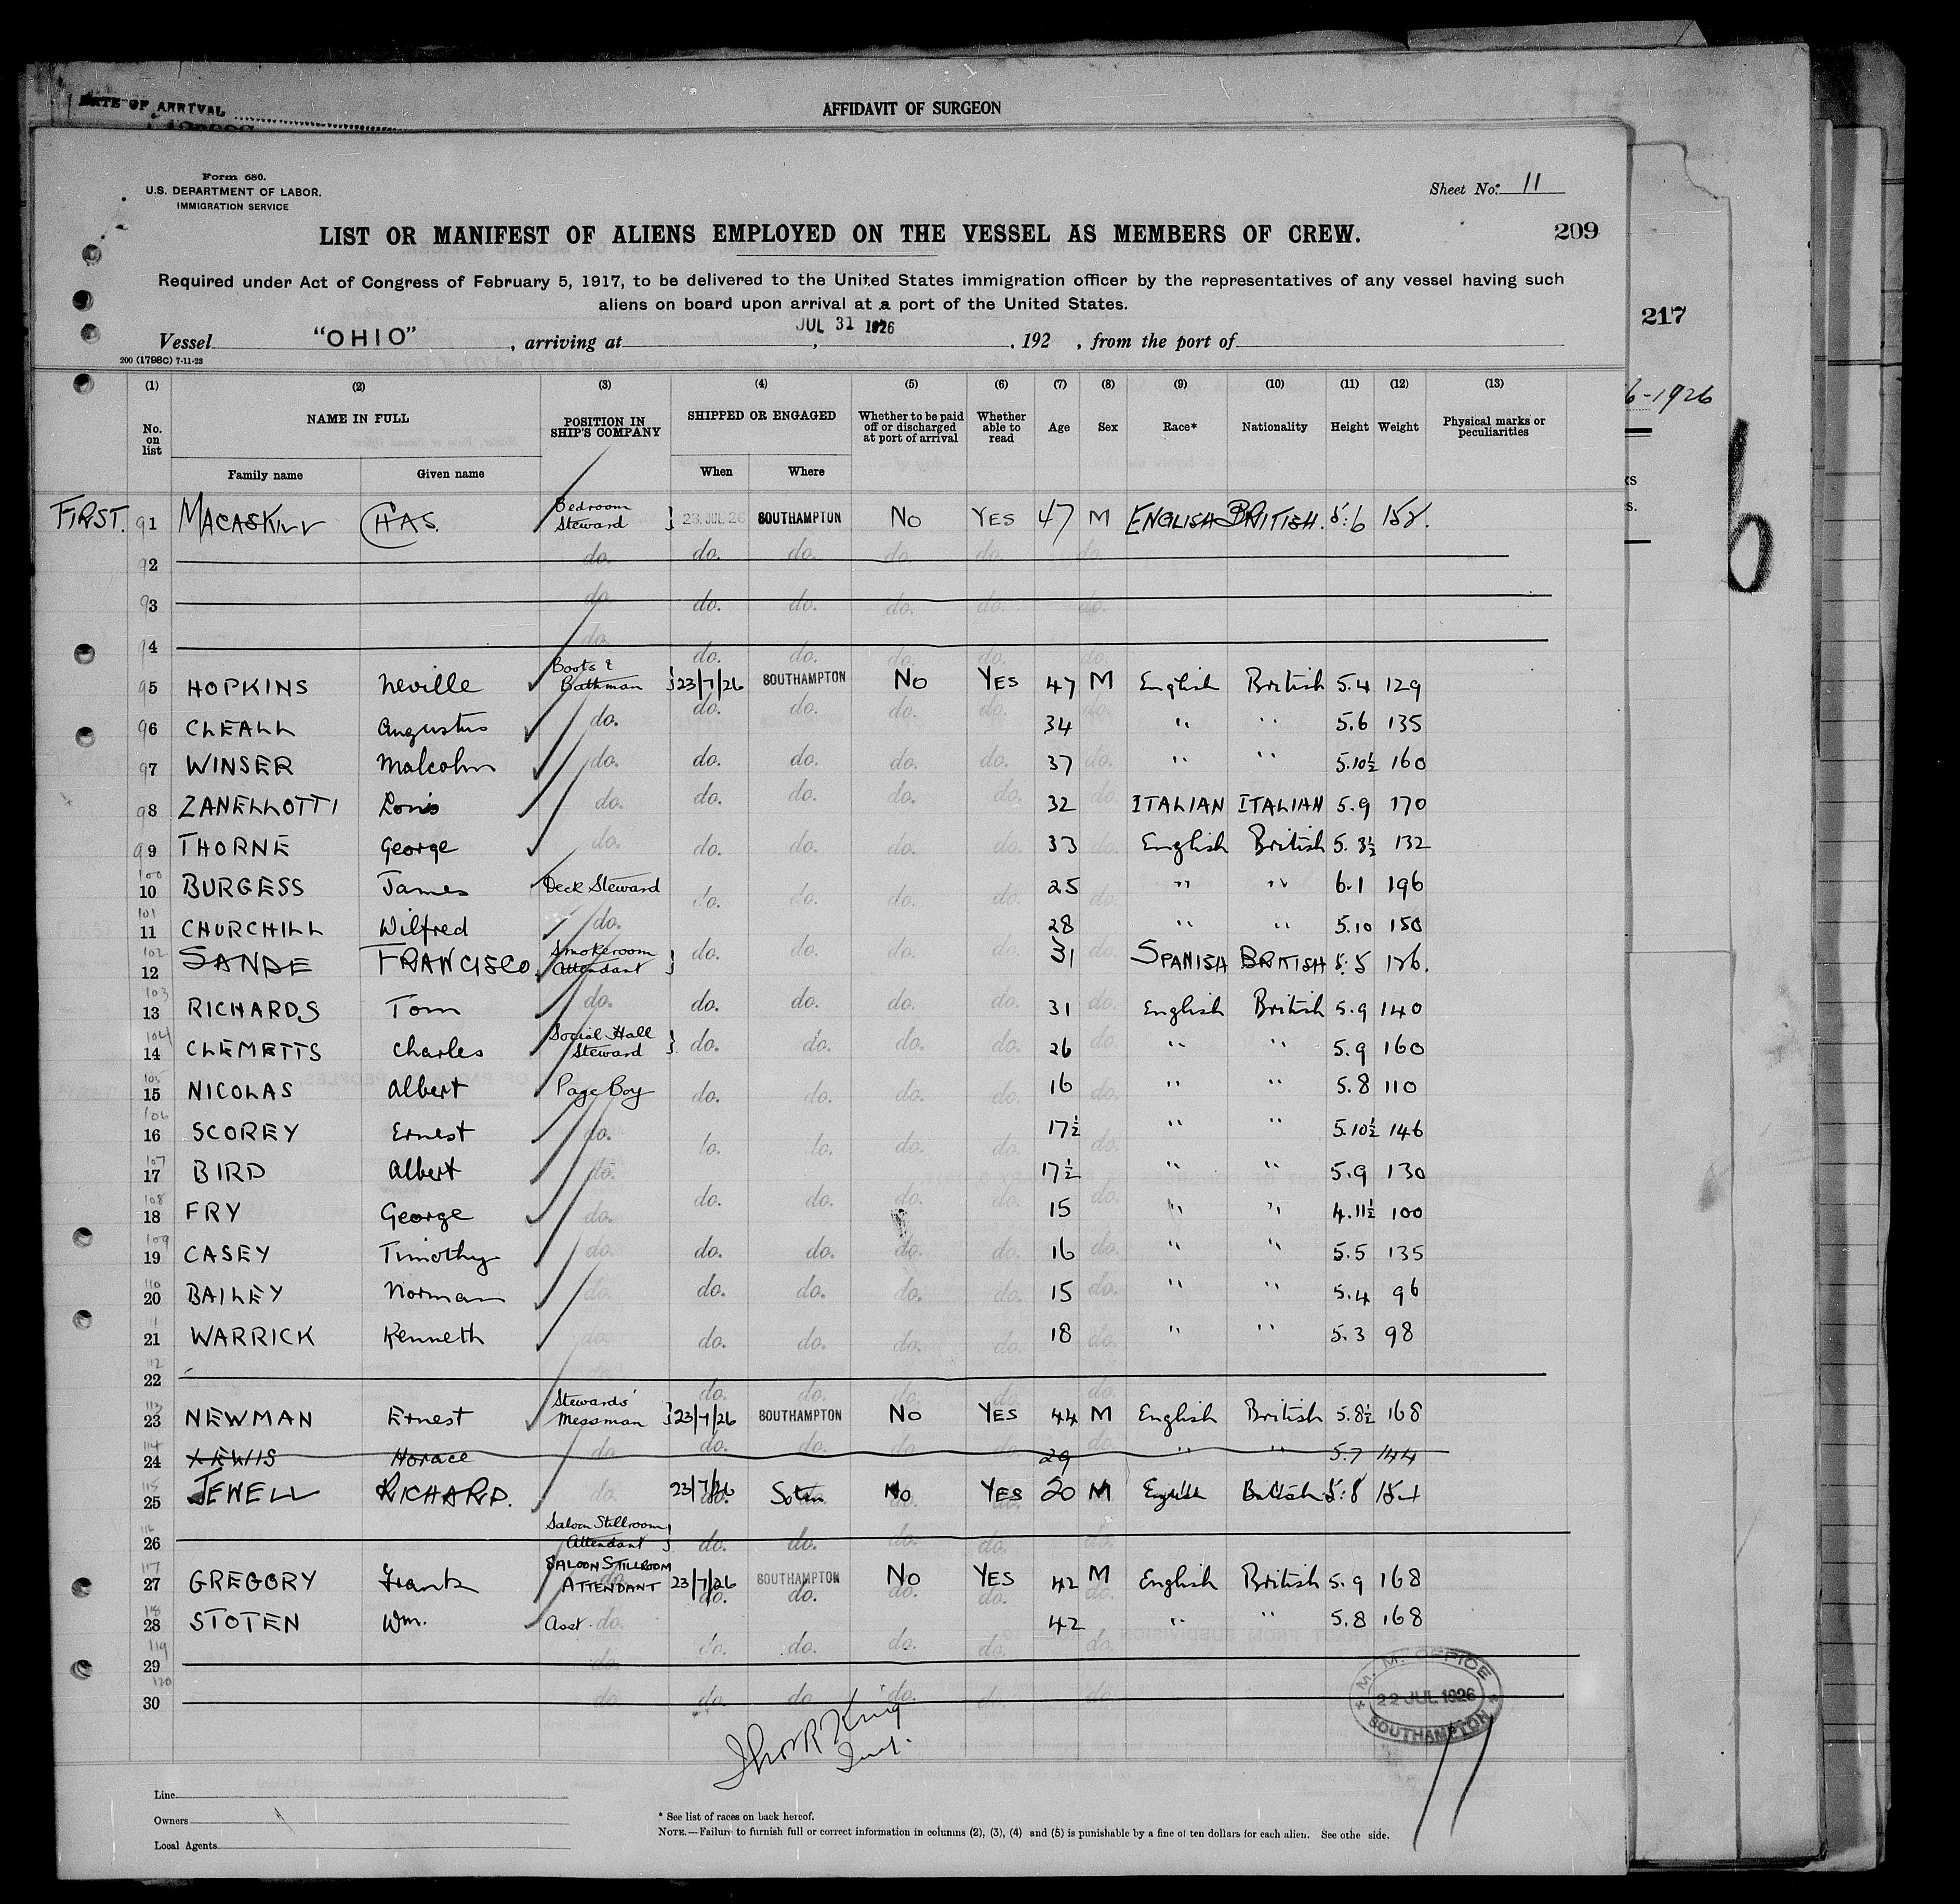 DATE OF ARRIVAL
AFFIDAVIT OF SURGEON
Form 680.
U.S. DEPARTMENT OF LABOR.
IMMIGRATION SERVICE
Sheet No. 11
LIST OR MANIFEST OF ALIENS EMPLOYED ON THE VESSEL AS MEMBERS OF CREW.
209
Required under Act of Congress of February 5, 1917, to be delivered to the United States immigration officer by the representatives of any vessel having such
aliens on board upon arrival at a port of the United States.
217
JUL 31 1926
Vessel "OHIO" , arriving at , , 192 , from the port of
200 (1798C) 7-11-23
6-1926
(1) (2) (3) (4) (5) (6) (7) (8) (9) (10) (11) (12) (13)
No. on list NAME IN FULL POSITION IN SHIP'S COMPANY SHIPPED OR ENGAGED Whether to be paid off or discharged at port of arrival Whether able to read Age Sex Race* Nationality Height Weight Physical marks or peculiarities
Family name Given name When Where
FIRST. 91 MACASKILL CHAS. Bedroom Steward } 23 JUL 26 SOUTHAMPTON No YES 47 M ENGLISH BRITISH. 5:6
92 do. do. do. do. do. do.
93 do. do. do. do. do. do.
94 do. do. do. do. do. do.
95 HOPKINS Neville Boots & Bathman } 23/7/26 SOUTHAMPTON No YES 47 M English British 5.4 129
96 CLEALL Augustus do. do. do. do. do. 34 do. " " 5.6 135
97 WINSER Malcolm do. do. do. do. do. 37 do. " " 5.10½ 160
98 ZANELLOTTI Louis do. do. do. do. do. 32 do. ITALIAN ITALIAN 5.9 170
99 THORNE George do. do. do. do. do. 33 do. English British 5.3½ 132
100 10 BURGESS James Deck Steward do. do. do. do. 25 do. " " 6.1 196
101 11 CHURCHILL Wilfred do. 28 " " 5.10 150
102 12 SANDE FRANCISCO Smokeroom Attendant } do. do. do. do. 31 do. SPANISH BRITISH 5:5
103 13 RICHARDS Tom do. do. do. do. do. 31 do. English British 5.9 140
104 14 CLEMETTS Charles Social Hall Steward } do. do. do. do. 26 do. " " 5.9 160
105 15 NICOLAS Albert Page Boy do. do. do. do. 16 do. " " 5.8 110
106 16 SCOREY Ernest do. do. do. do. do. 17½ do. " " 5.10½ 146
107 17 BIRD Albert do. 17½ " " 5.9 130
108 18 FRY George do. do. do. do. do. 15 do. " " 4.11½ 100
109 19 CASEY Timothy do. do. do. do. do. 16 do. " " 5.5 135
110 20 BAILEY Norman do. do. do. do. do. 15 do. " " 5.4 96
111 21 WARRICK Kenneth do. do. do. do. do. 18 do. " " 5.3 98
112 22 do. do. do. do. do.
113 23 NEWMAN Ernest Stewards' Messman } 23/7/26 SOUTHAMPTON No YES 44 M English British 5.8½ 168
114 24 LEWIS Horace do. do. do. do. do. 29 do. " " 5.7 144
115 25 JEWELL RICHARD. do. 23/7/26 Soton No YES 20 M English British 5:8
116 26 Saloon Stillroom Attendant } do. do. do. do. do.
117 27 GREGORY Frank SALOON STILLROOM ATTENDANT 23/7/26 SOUTHAMPTON No YES 42 M English British 5.9 168
118 28 STOTEN Wm. Asst. do. 42 " " 5.8 168
119 29 do. do. do. do. do. do.
120 30 do. do. do. do. do. do.
M. M. OFFICE
22 JUL 1926
SOUTHAMPTON
Line
Owners
Local Agents
* See list of races on back hereof.
NOTE.—Failure to furnish full or correct information in columns (2), (3), (4) and (5) is punishable by a fine of ten dollars for each alien. See othe side.